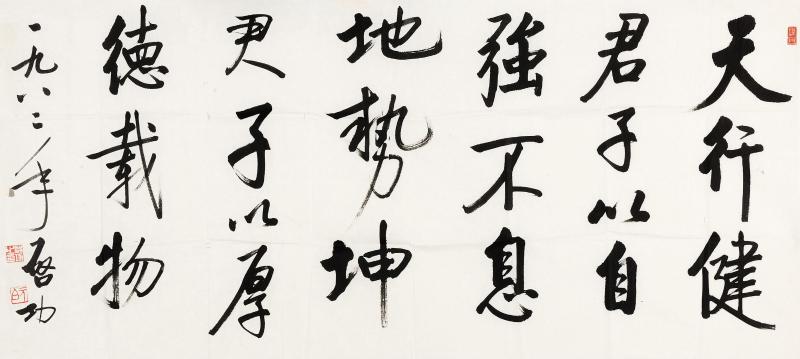 天行健
君子以自
強不息
地勢坤
君子以厚
德載物
一九八二年 啓功